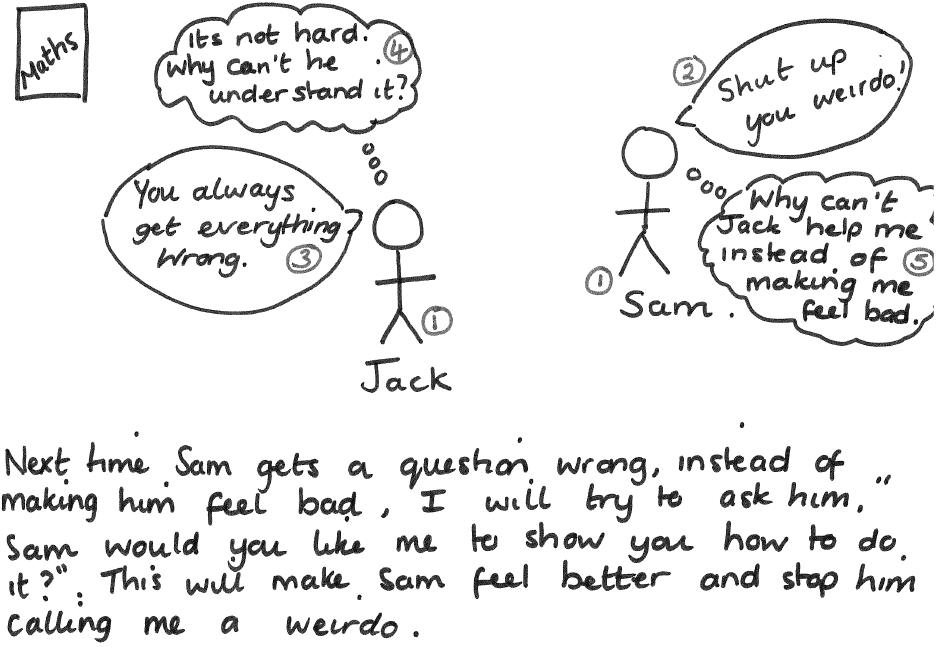 Maths
Its not hard.
④
why can't he
understand it?
②
Shut up
you weirdo!
You always
get everything
wrong.
③
①
Jack
Why can't
Jack help me
instead of
⑤
making me
feel bad.
①
Sam.
Next time Sam gets a question wrong, instead of
making him feel bad, I will try to ask him, "
Sam would you like me to show you how to do
it?". This will make Sam feel better and stop him
calling me a weirdo.